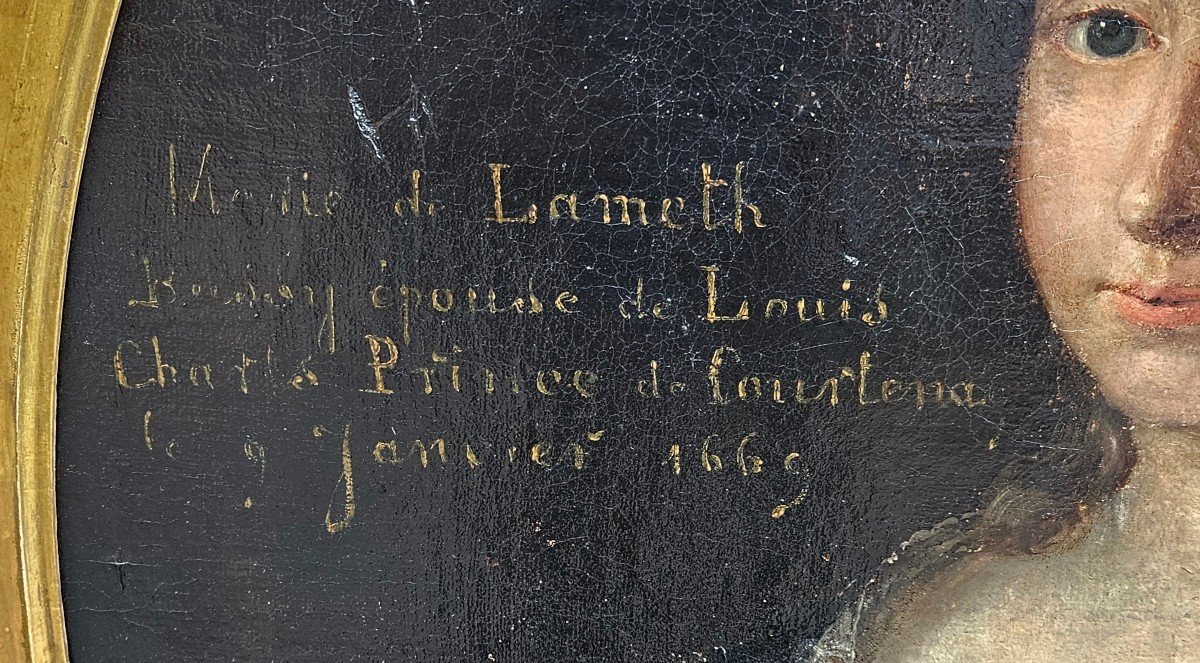 Marie de Lameth
épouse de Louis
Charls Prince de Courtena
le 9 Janvier 1669